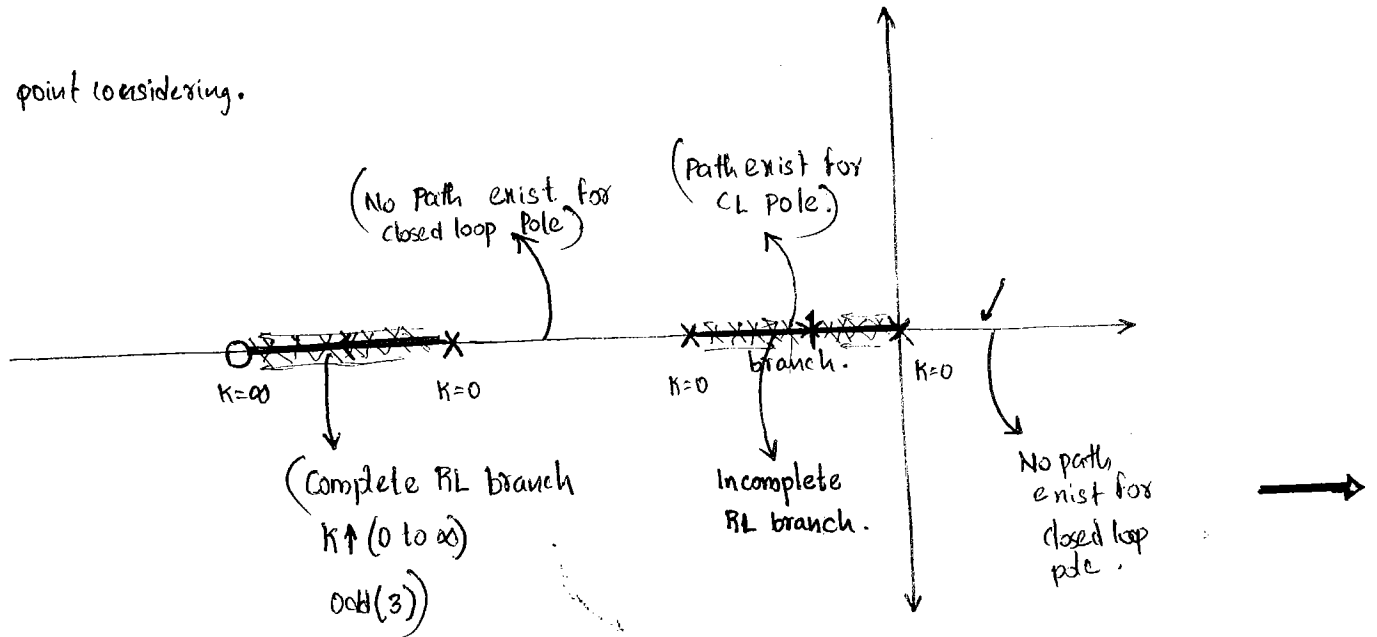 point considering.
(No Path exist for
closed loop Pole)
(Path exist for
CL pole.)
branch.
K=∞
K=0
K=0
K=0
(Complete RL branch
K↑ (0 to ∞)
odd(3))
Incomplete
RL branch.
No path
exist for
closed loop
pole.